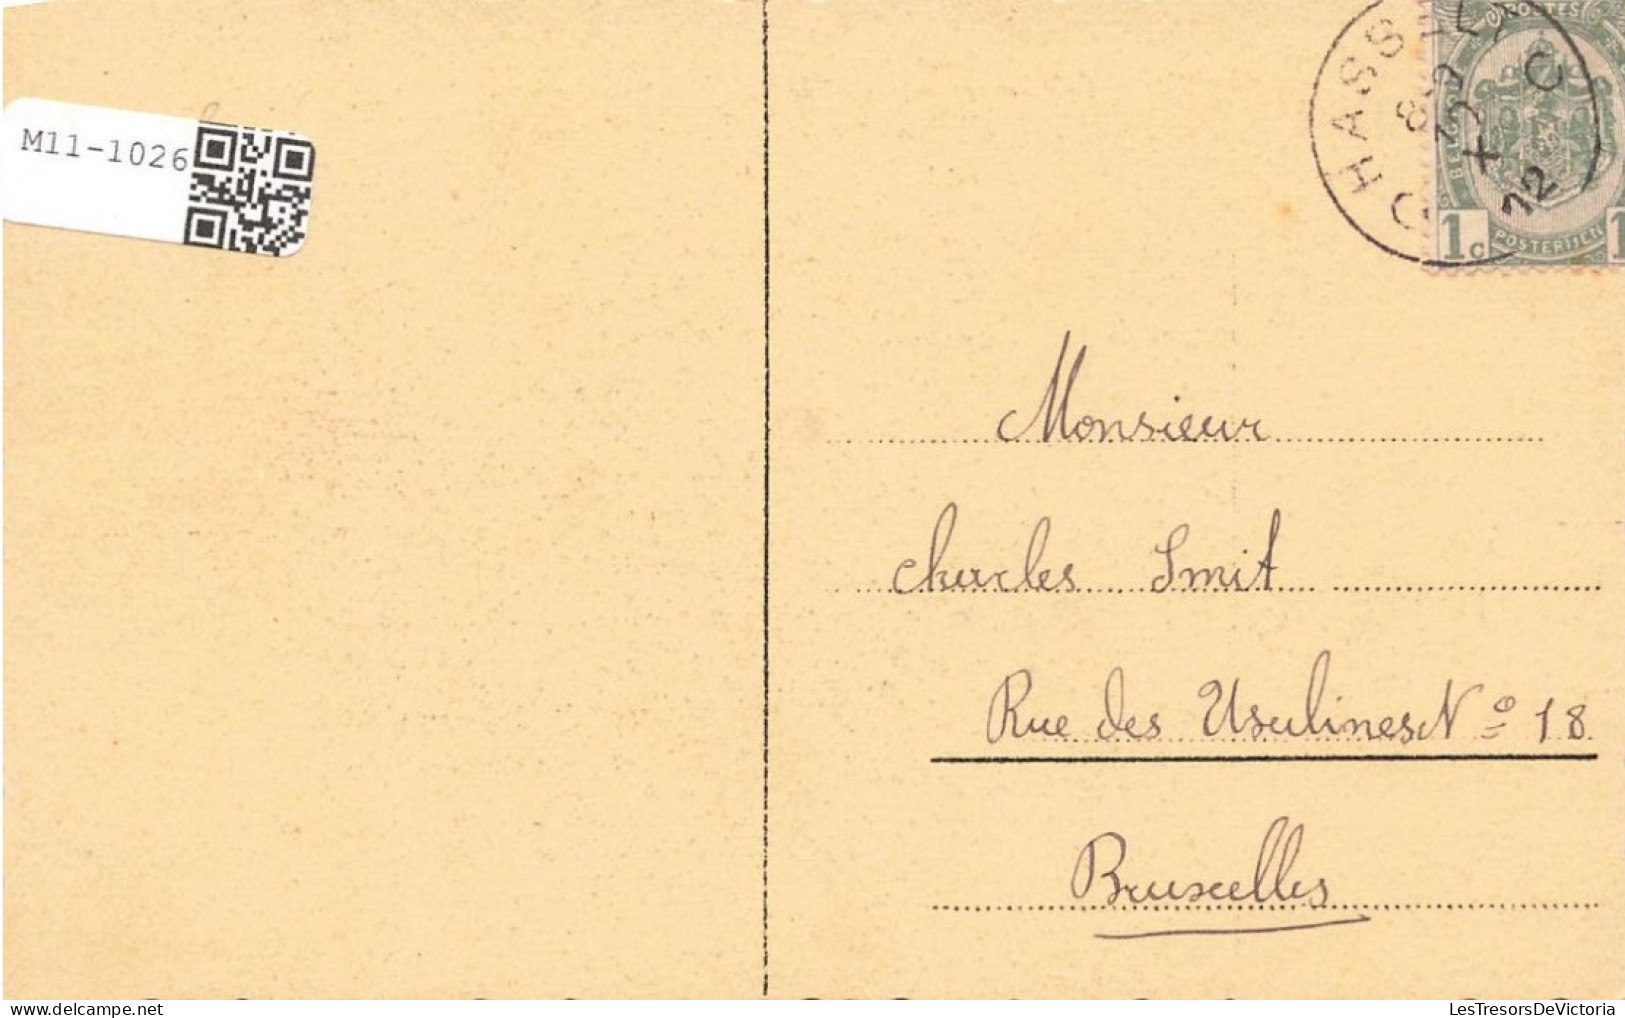 M11-1026
HASSELT
POSTES
C
12
1c
POSTERIJEN
Monsieur
Charles Smit
Rue des Usulines Nº 18
Bruxelles
delcampe.net
LesTresorsDeVictoria